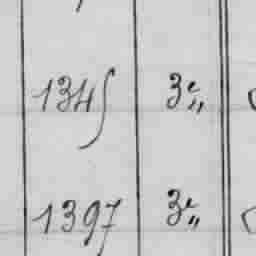 1345 3e„
1397 3e„